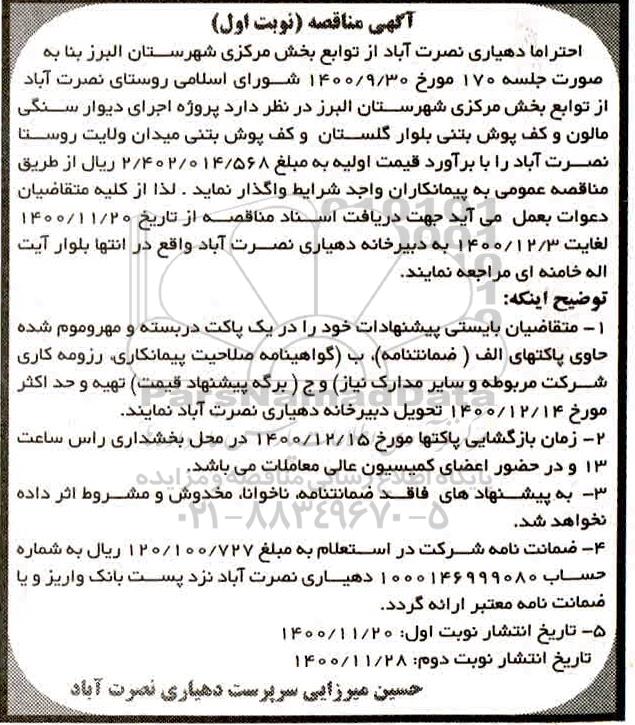 آگهی مناقصه (نوبت اول)
احتراما دهیاری نصرت آباد از توابع بخش مرکزی شهرستان البرز بنا به
صورت جلسه ۱۷۰ مورخ ۱۴۰۰/۹/۳۰ شورای اسلامی روستای نصرت آباد
از توابع بخش مرکزی شهرستان البرز در نظر دارد پروژه اجرای دیوار سنگی
مالون و کف پوش بتنی بلوار گلستان و کف پوش بتنی میدان ولایت روستا
نصرت آباد را با برآورد قیمت اولیه به مبلغ ۲/۴۰۲/۰۱۴/۵۶۸ ریال از طریق
مناقصه عمومی به پیمانکاران واجد شرایط واگذار نماید . لذا از کلیه متقاضیان
دعوات بعمل می آید جهت دریافت اسناد مناقصه از تاریخ ۱۴۰۰/۱۱/۲۰
لغایت ۱۴۰۰/۱۲/۳ به دبیرخانه دهیاری نصرت آباد واقع در انتها بلوار آیت
اله خامنه ای مراجعه نمایند.
توضیح اینکه:
۱- متقاضیان بایستی پیشنهادات خود را در یک پاکت دربسته و مهروموم شده
حاوی پاکتهای الف ( ضمانتنامه)، ب (گواهینامه صلاحیت پیمانکاری، رزومه کاری
شرکت مربوطه و سایر مدارک نیاز) و ج ( برگه پیشنهاد قیمت) تهیه و حد اکثر
مورخ ۱۴۰۰/۱۲/۱۴ تحویل دبیرخانه دهیاری نصرت آباد نمایند.
ParsNamadData
۲- زمان بازگشایی پاکتها مورخ ۱۴۰۰/۱۲/۱۵ در محل بخشداری راس ساعت
۱۳ و در حضور اعضای کمیسیون عالی معاملات می باشد.
پایگاه اطلاع رسانی مناقصه و مزایده
۳- به پیشنهاد های فاقد ضمانتنامه، ناخوانا، مخدوش و مشروط اثر داده
نخواهد شد.
۰۲۱-۸۸۳۴۹۶۷۰-۵
۴- ضمانت نامه شرکت در استعلام به مبلغ ۱۲۰/۱۰۰/۷۲۷ ریال به شماره
حساب ۱۰۰۰۱۴۶۹۹۹۰۸۰ دهیاری نصرت آباد نزد پست بانک واریز و یا
ضمانت نامه معتبر ارائه گردد.
۵- تاریخ انتشار نوبت اول: ۱۴۰۰/۱۱/۲۰
تاریخ انتشار نوبت دوم: ۱۴۰۰/۱۱/۲۸
حسین میرزایی سرپرست دهیاری نصرت آباد